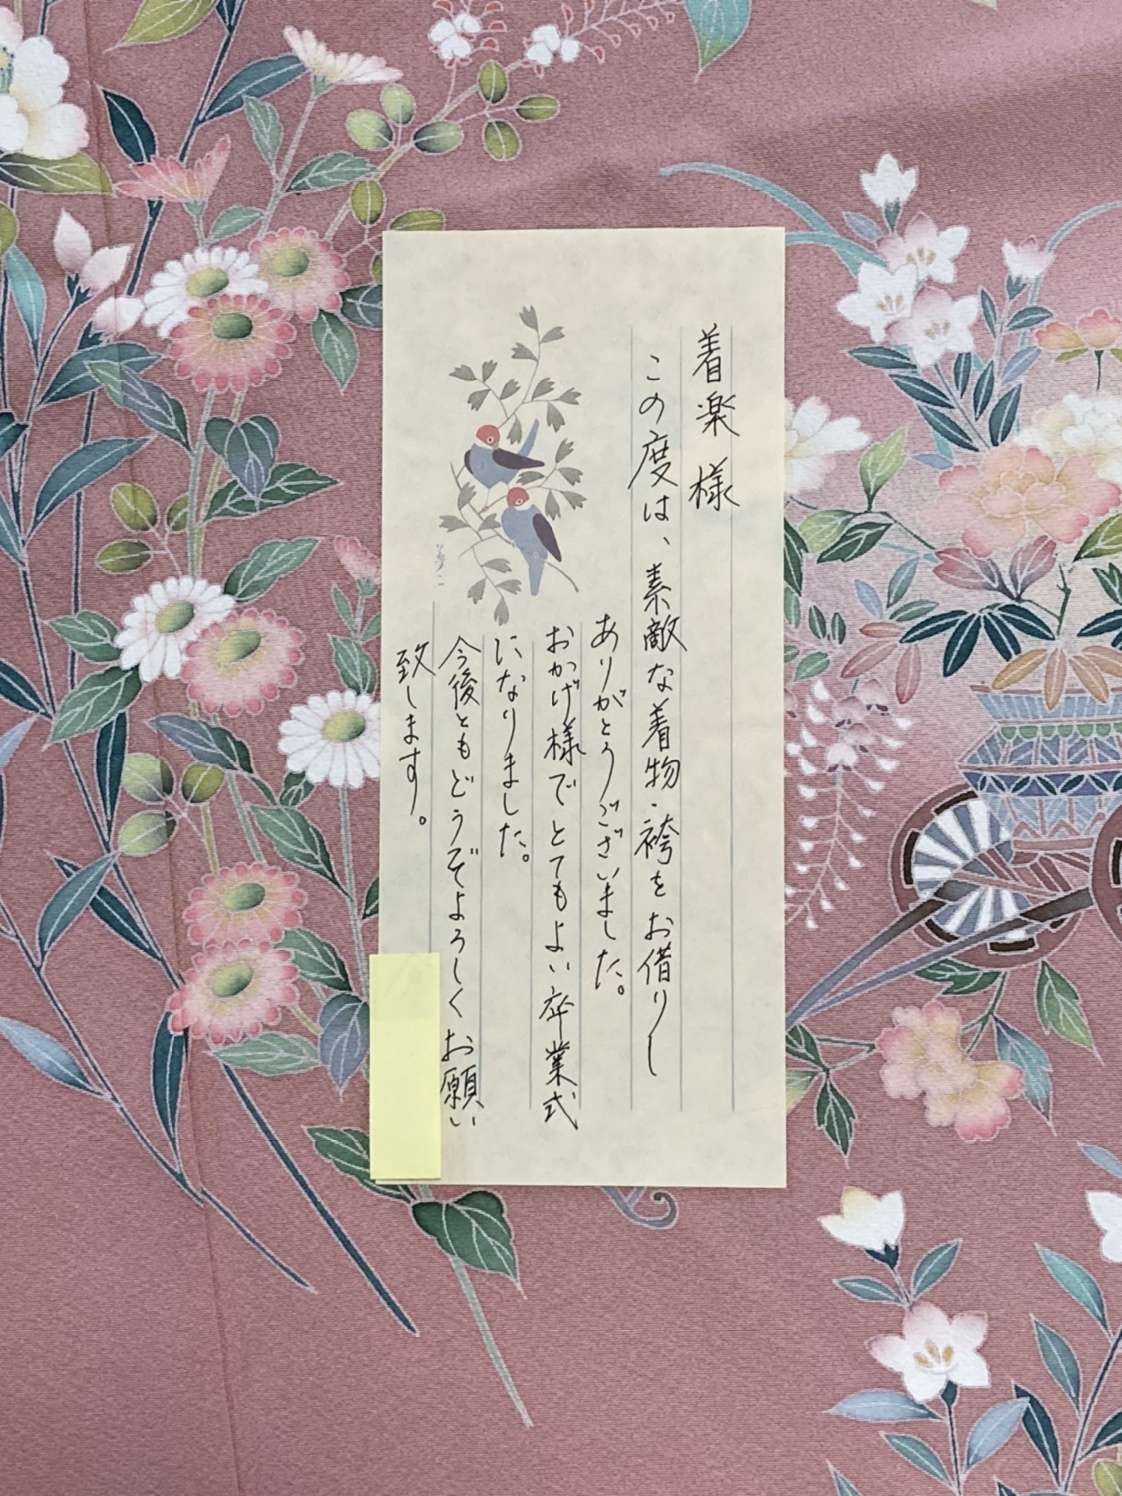 着楽 様
この度は、素敵な着物・袴をお借りし
ありがとうございました。
おかげ様でとてもよい卒業式
になりました。
今後ともどうぞよろしくお願い
致します。
夢二